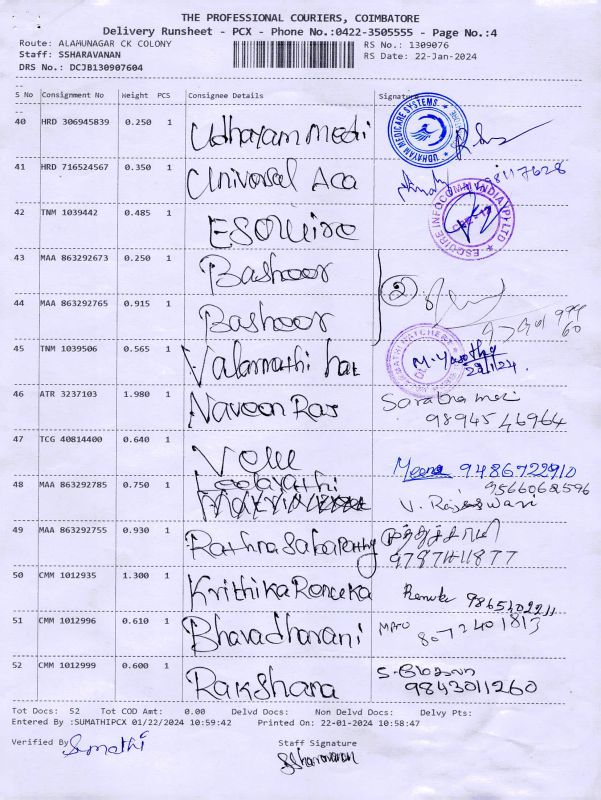 THE PROFESSIONAL COURIERS, COIMBATORE
Delivery Runsheet - PCX - Phone No.:0422-3505555 - Page No.:4
Route: ALAMUNAGAR CK COLONY RS No.: 1309076
Staff: SSHARAVANAN RS Date: 22-Jan-2024
DRS No.: DCJB130907604
S No Consignment No Weight PCS Consignee Details Signature
40 HRD 306945839 0.250 1 Udhayam medi
UDHAYAM MEDICARE SYSTEMS
41 HRD 716524567 0.350 1 Universal Aca
42 TNM 1039442 0.485 1 ESQUire
ESQUIRE INFOCOMM INDIA (P) LTD
43 MAA 863292673 0.250 1 Basheer
44 MAA 863292765 0.915 1 Basheer 2
45 TNM 1039506 0.565 1 Valarmathi hat M. Yasotha
22/1/24
46 ATR 3237103 1.980 1 Naveen Raj
9894546964
47 TCG 40814400 0.640 1 Velu Meena 9486722910
9566062596
48 MAA 863292785 0.750 1 Leelavathi V. Rajeswari
49 MAA 863292755 0.930 1 Rathna Sabapathy
50 CMM 1012935 1.300 1 Krithika Renuka Renuka
51 CMM 1012996 0.610 1 Bhavadharani 8072401813
52 CMM 1012999 0.600 1 Rakshana 9843011260
Tot Docs: 52 Tot COD Amt: 0.00 Delvd Docs: Non Delvd Docs: Delvy Pts:
Entered By :SUMATHIPCX 01/22/2024 10:59:42 Printed On: 22-01-2024 10:58:47
Verified By Sumathi Staff Signature
SSharavanan